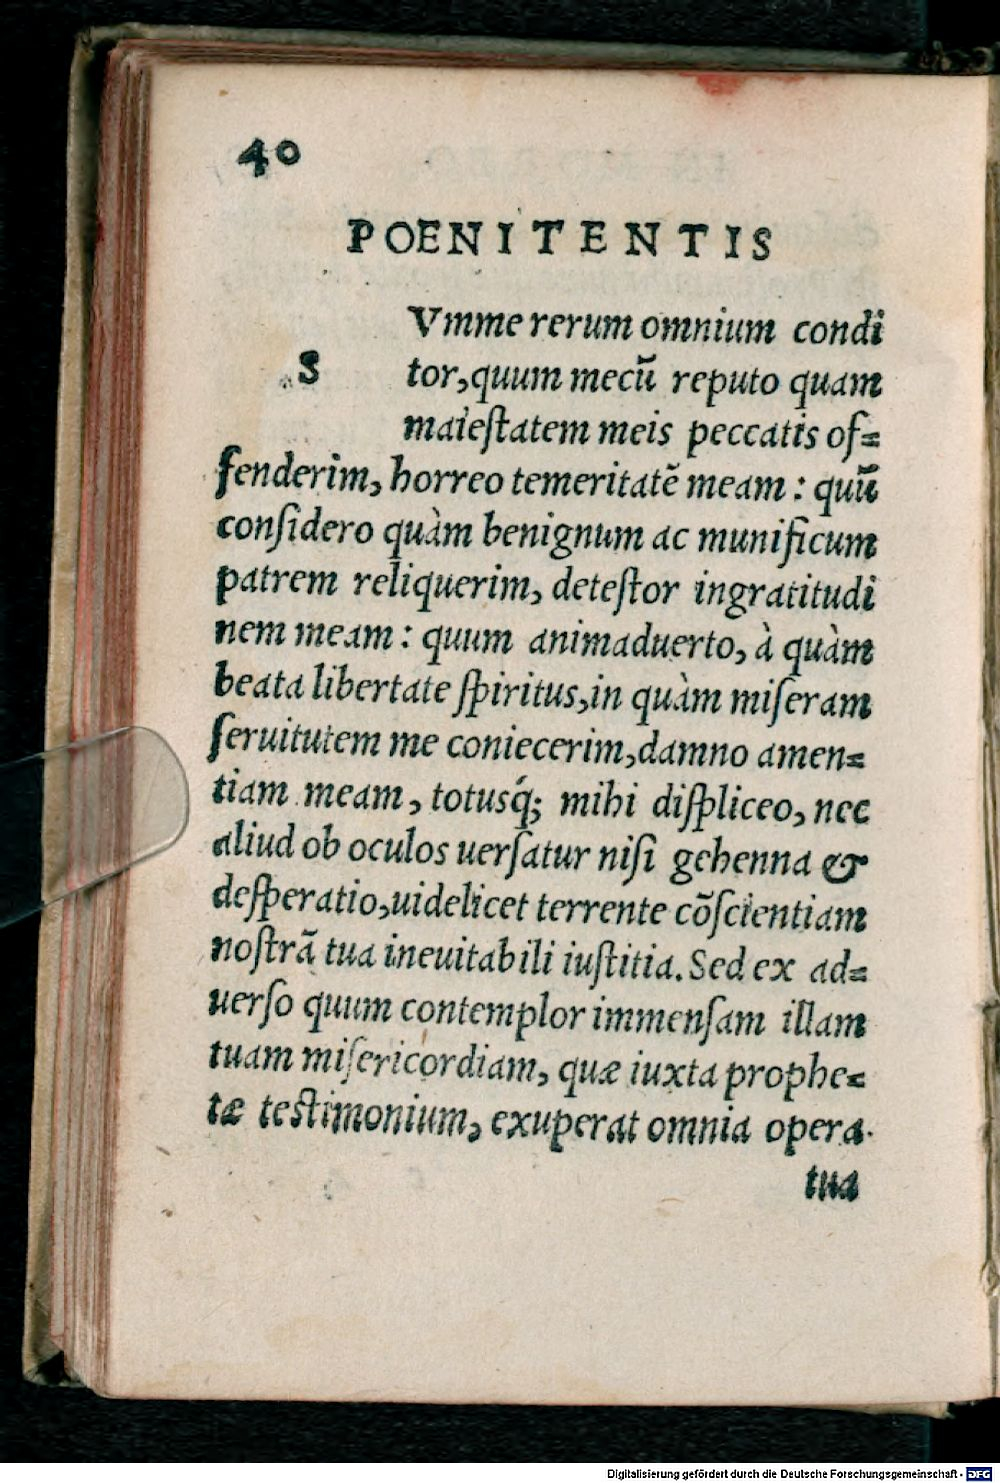 40
POENITENTIS
SVmme rerum omnium condi
tor, quum mecū reputo quam
maiestatem meis peccatis of=
fenderim, horreo temeritatē meam : quū
considero quàm benignum ac munificum
patrem reliquerim, detestor ingratitudi
nem meam : quum animaduerto, à quàm
beata libertate spiritus, in quàm miseram
seruitutem me coniecerim, damno amen=
tiam meam, totusq́; mihi displiceo, nec
aliud ob oculos uersatur nisi gehenna &
desperatio, uidelicet terrente cōscientiam
nostrā tua ineuitabili iustitia. Sed ex ad=
uerso quum contemplor immensam illam
tuam misericordiam, quæ iuxta prophe=
tæ testimonium, exuperat omnia opera
tua
Digitalisierung gefördert durch die Deutsche Forschungsgemeinschaft - DFG